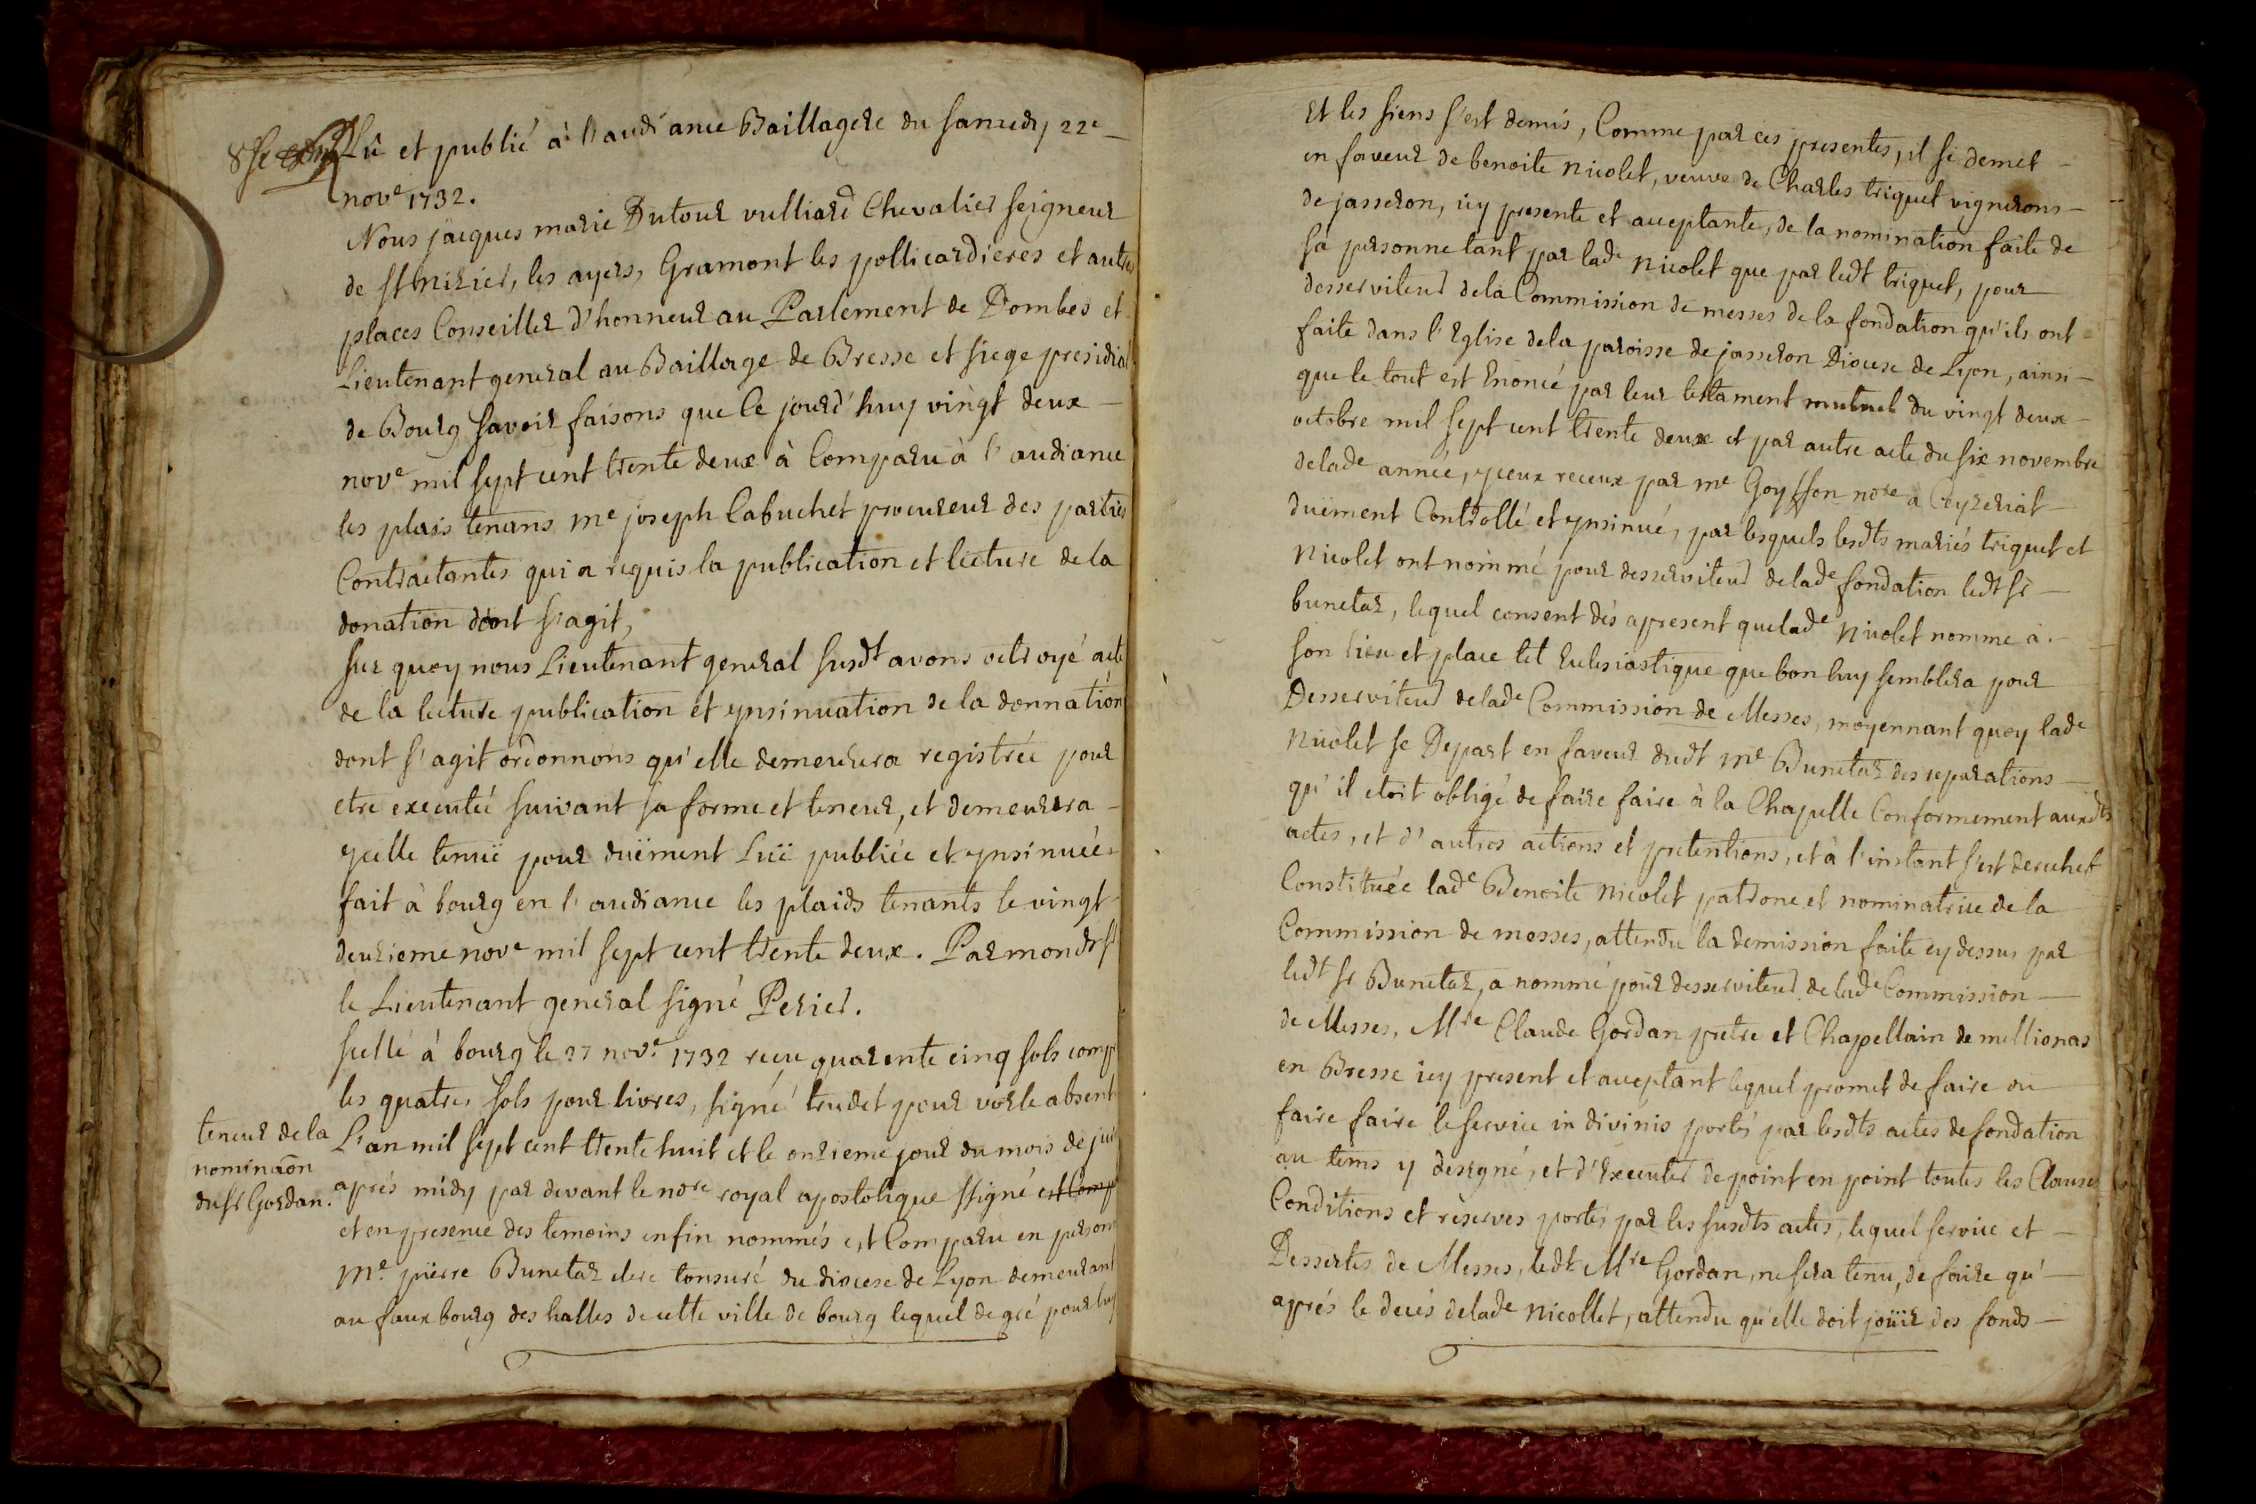 Lû et publié à l'audiance Baillagere du samedy 22e
nove 1732.
Nous jacques marie Dutour vulliard Chevalier seigneur
de st nizier, les ayers, Gramont les pollicardieres et autres
places Conseiller d'honneur au Parlement de Dombes et
Lieutenant general au Baillage de Bresse et siege presidial
de Bourg savoir faisons que ce jourd'huy vingt deux
nove mil sept cent trente deux à Comparu à l'audiance
les plais tenans me joseph Cabuchet procureur des parties
Contractantes qui a requis la publication et lecture de la
donation dont s'agit,
sur quoy nous Lieutenant general susdt avons octroyé acte
de la lecture publication et ynsinuation de la donnation
dont s'agit ordonnons qu'elle demeurera registrée pour
etre executée suivant sa forme et teneur, et demeurera
ycelle tenuë pour duëment Luë publiée et ynsinuée
fait à bourg en l'audiance les plaids tenants le vingt
deuzieme nove mil sept cent trente deux. Par mondt sr
le Lieutenant general signé Perier.
scellé à bourg le 27 nove 1732 receu quarente cinq sols comp
les quatres sols pour livres, signé trudet pour vorle absent
teneur de la
nominaõn
du sr Gordan.
L'an mil sept cent trente huit et le onzieme jour du mois de jui
aprés midy par devant le nore royal apostolique ssigné est Comp
et en presence des temoins enfin nommés est Comparu en person
Me. pierre Bunetar clerc tonsuré du diocese de Lyon demeurant
au faux bourg des halles de cette ville de bourg lequel de gré pour luy
Et les siens s'est demis, Comme par ces presentes, il se demet
en faveur de benoite Nicolet, veuve de Charles triquet vignerons
de jasseron, icy presente et acceptante, de la nomination faite de
sa personne tant par lade Nicolet que par ledt triquet, pour
desserviteur de la Commission de messes de la fondation qu'ils ont
faite dans l'Eglise de la paroisse de jasseron Diocese de Lyon, ainsi
que le tout est Enoncé par leur testament mutuel du vingt deux
octobre mil sept cent trente deux et par autre acte du six novembre
de lade année, yceux receux par me Goyffon nore a Ceyzeriat
duëment Controllé et ynsinué, par lesquels lesdts mariés triquet et
Nicolet ont nommé pour desserviteur de lade fondation ledt sr
bunetar, lequel consent dés apresent que lade Nicolet nomme à
son lieu et place tel Eclesiastique que bon luy semblera pour
Desserviteur de lade Commission de Messes, moyennant quoy lade
Nicolet se Depart en faveur dudt me Bunetar des reparations
qu'il etoit obligé de faire faire à la Chapelle Conformement auxdts
actes, et d'autres actions et pretentions, et à l'instant s'est derechef
Constituée lade Benoite Nicolet patrone et nominatrice de la
Commission de messes, attendu la demission faite cy dessus par
ledt sr Bunetar, a nommé pour desserviteur de lade Commission
de Messes, Mre Claude Gordan pretre et Chapellain de mellionas
en Bresse icy present et acceptant lequel promet de faire ou
faire faire le service in divinis portés par lesdts actes de fondation
au tems y designé, et d'Executer de point en point toutes les Clauses
Conditions et réserves portés par les susdts actes, lequel service et
Dessertes de Messes, ledt Mre Gordan, ne sera tenu, de faire qu'
aprés le decés de lade Nicollet, attendu qu'elle doit joüir des fonds